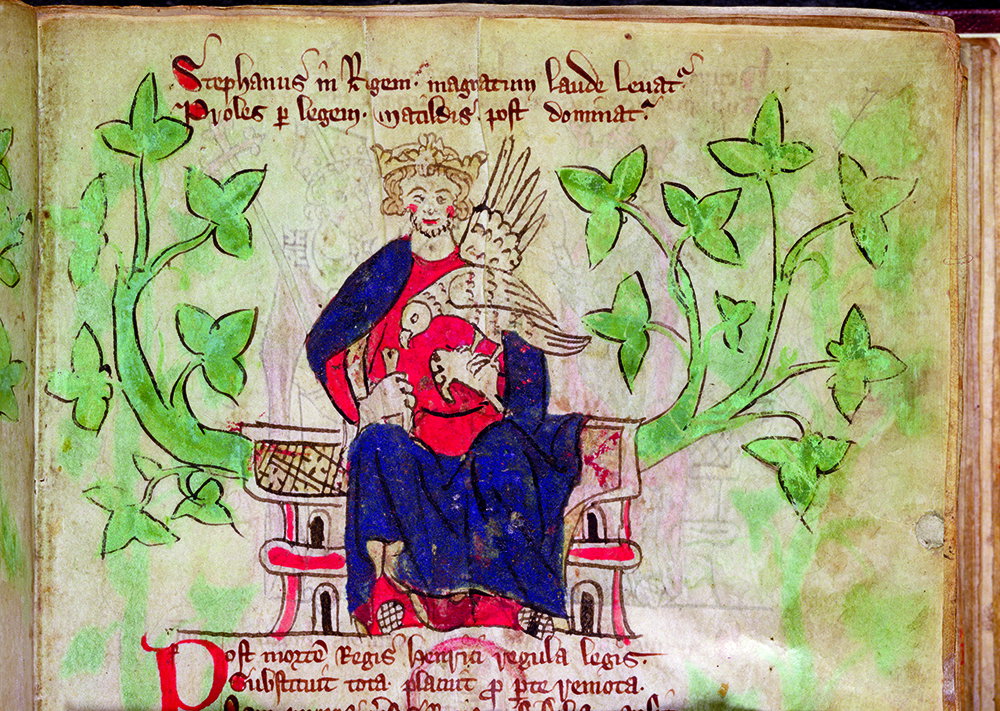 Stephanus in Regem magnatum laude levat
Proles p legem matildis post dominat
Post morte Regis henrici regula legis
Substituit tota placuit p pte remota